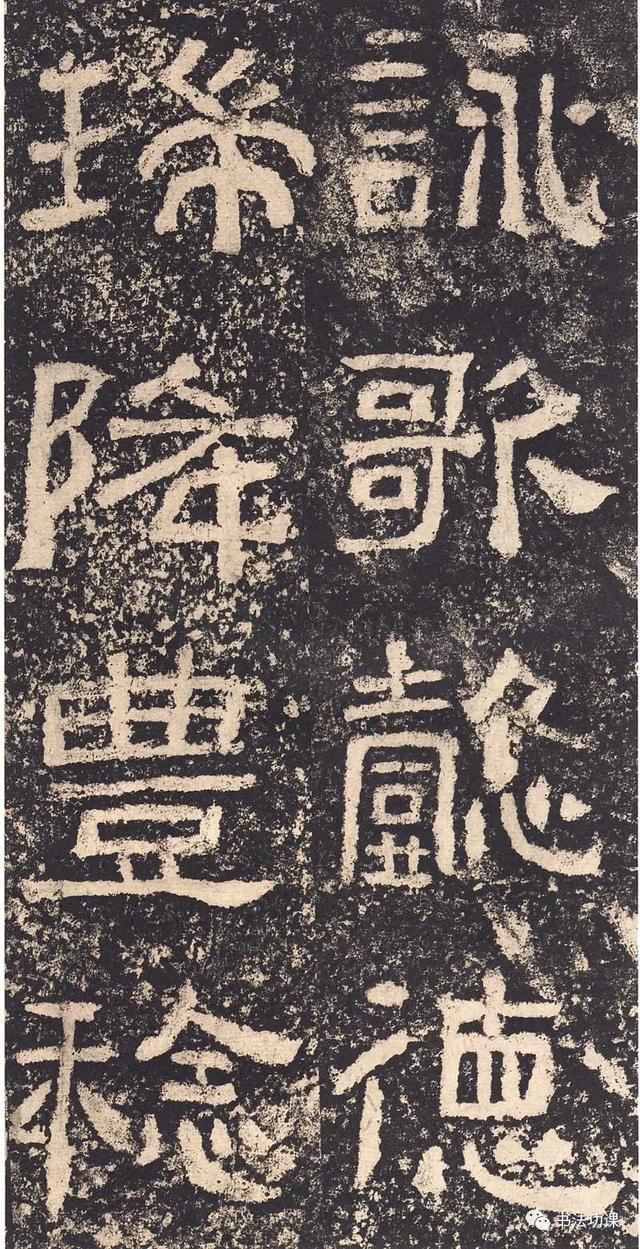 詠歌懿德
瑞降豐稔
书法功课